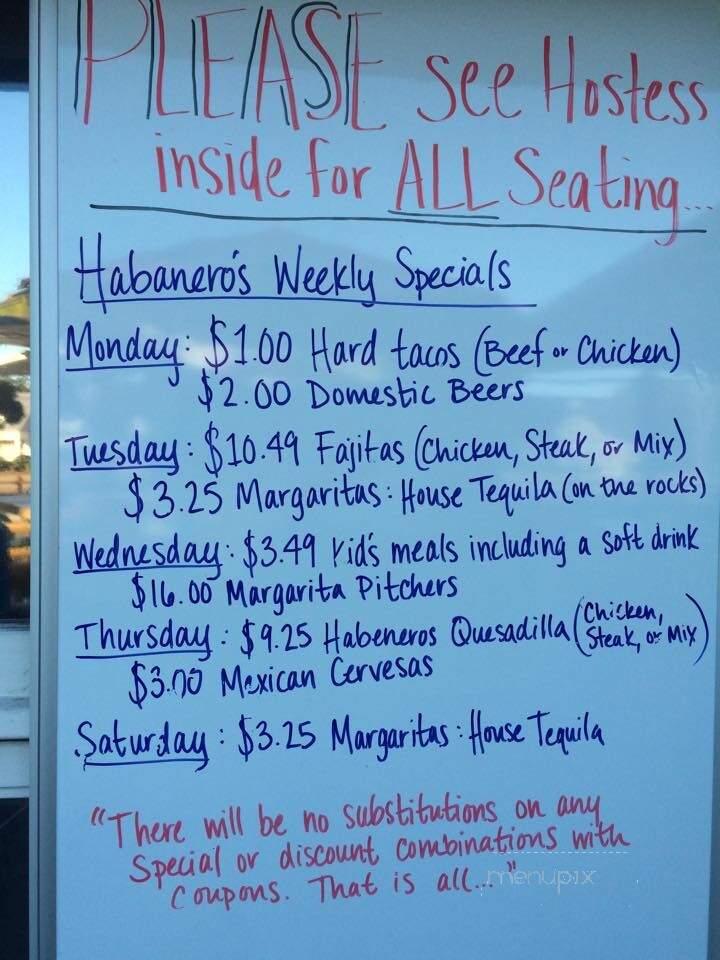 PLEASE see Hostess
inside for ALL Seating...
Habanero's Weekly Specials
Monday: $1.00 Hard tacos (Beef or Chicken)
$2.00 Domestic Beers
Tuesday: $10.49 Fajitas (Chicken, Steak, or Mix)
$3.25 Margaritas: House Tequila (on the rocks)
Wednesday: $3.49 Kid's meals including a soft drink
$16.00 Margarita Pitchers
Thursday: $9.25 Habeneros Quesadilla (Chicken, Steak, or Mix)
$3.00 Mexican Cervesas
Saturday: $3.25 Margaritas: House Tequila
"There will be no substitutions on any
Special or discount combinations with
Coupons. That is all..."
menupix